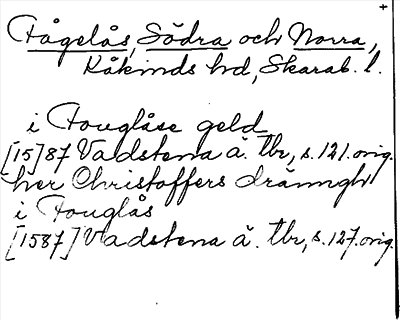 +
Fågelås, Södra och Norra,
Kåkinds hd, Skarab. l.
i Fouglåse geld
[15]87 Vadstena ä. tbr, s. 121. orig.
her Christoffers dränngh
i Fouglås
[1587] Vadstena ä. tbr, s. 127. orig.